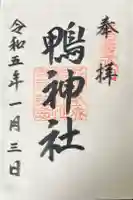 奉拝
鴨神社
令和五年一月三日